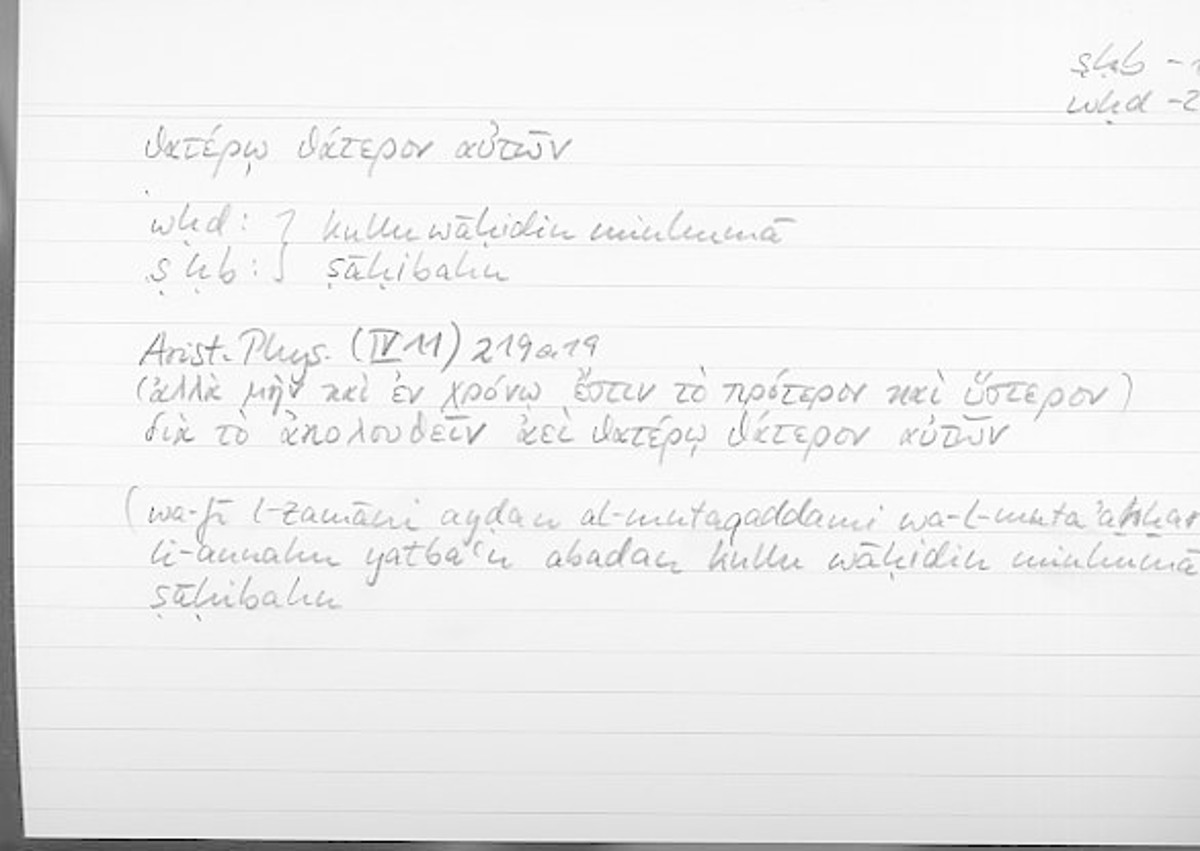 ṣḥb -1
wḥd -2
θατέρῳ θάτερον αὐτῶν
wḥd: } kullu wāḥidin minhumā
ṣḥb: } ṣāḥibahu
Arist. Phys. (IV 11) 219a19
(ἀλλὰ μὴν καὶ ἐν χρόνῳ ἔστιν τὸ πρότερον καὶ ὕστερον)
διὰ τὸ ἀκολουθεῖν ἀεὶ θατέρῳ θάτερον αὐτῶν
(wa-fī l-zamāni ayḍan al-mutaqaddimu wa-l-mutaʾaḫḫar
li-annahu yatbaʿu abadan kullu wāḥidin minhumā
ṣāḥibahu